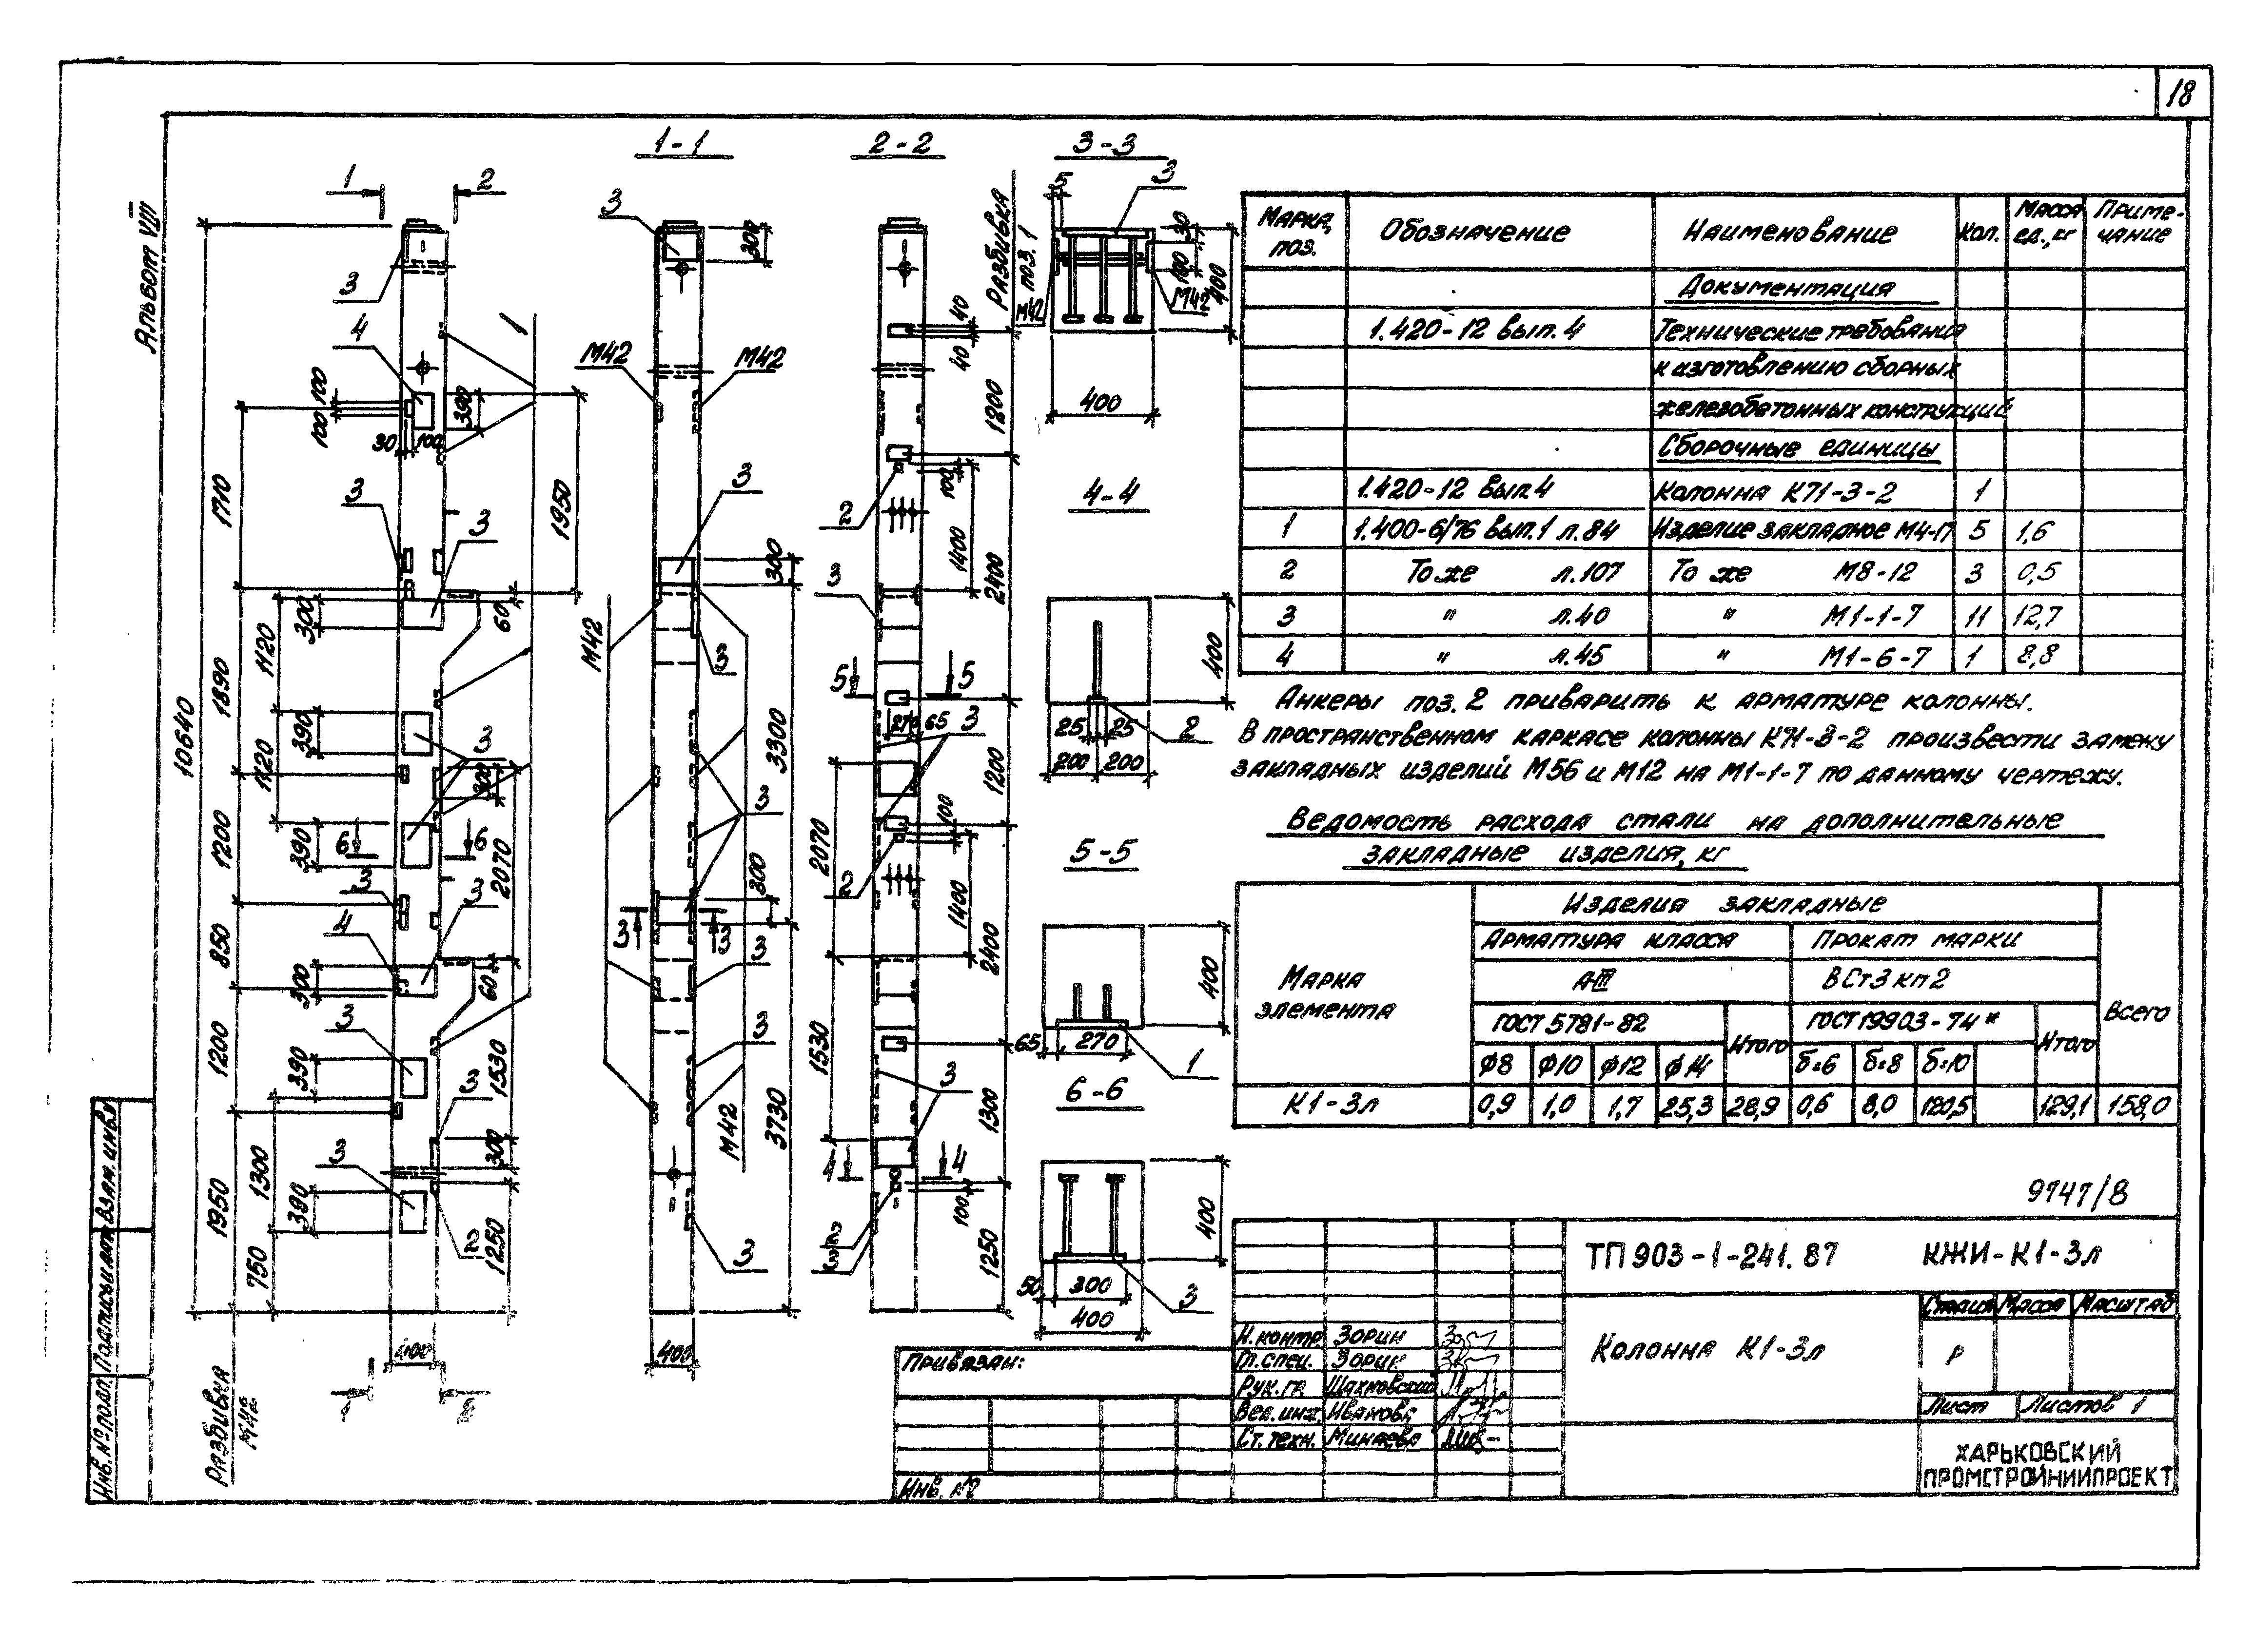 18
Альбом VIII
1-1
2-2
3-3
4-4
5-5
6-6
1 2
3
4
1
100
100
390
30 100
1710
1950
3
3
300
60
1120
1890
10640
390
3
1120
300
1200
390
6 6
2070
3
3
850
4
300
60
3
1200
390
1530
3
300
1300
3
1950
390
2
1250
750
400
Разбивка
М42
3
300
М42
М42
3
300
М42
3
3300
3
300
3 3
3
3
М42
3730
3
400
Разбивка
поз. 1
40
40
1800
100
2
1400
2400
3
5 5
270 65 3
1200
100
2070
2
1400
2400
1530
3
1300
4 4
100
2
3
1250
5
3
30
100
400
М42
М42
400
400
25 25
2
200 200
400
65 270
1
400
50 300
3
400
Марка, поз. Обозначение Наименование Кол. Масса ед., кг Приме-чание
Документация
1.420-12 вып. 4 Технические требования
к изготовлению сборных
железобетонных конструкций
Сборочные единицы
1.420-12 вып 4 Колонна К71-3-2 1
1 1.400-6/76 вып.1 л.84 Изделие закладное М4-17 5 1,6
2 То же л.107 То же М8-12 3 0,5
3 " л.40 " М1-1-7 11 12,7
4 " л.45 " М1-6-7 1 8,8
Анкеры поз. 2 приварить к арматуре колонны.
В пространственном каркасе колонны К71-3-2 произвести замену
закладных изделий М56 и М12 на М1-1-7 по данному чертежу.
Ведомость расхода стали на дополнительные
закладные изделия, кг
Марка элемента
Изделия закладные
Арматура класса Прокат марки
А-III ВСт3кп2
ГОСТ 5781-82 Итого ГОСТ 19903-74* Итого Всего
Ф8 Ф10 Ф12 Ф14 б=6 б=8 б=10
К1-3л 0,9 1,0 1,7 25,3 28,9 0,6 8,0 120,5 129,1 158,0
9747/8
ТП 903-1-241.87 КЖИ-К1-3л
Колонна К1-3л
Стадия Масса Масштаб
Р
Лист Листов 1
ХАРЬКОВСКИЙ
ПРОМСТРОЙНИИПРОЕКТ
Н.контр. Зорин
Гл.спец. Зорин
Рук.гр. Шахновский
Вед.инж. Иванова
Ст.техн. Минаева
Привязан:
Инв. №
Инв.№ подл. Подпись и дата Взам.инв.№